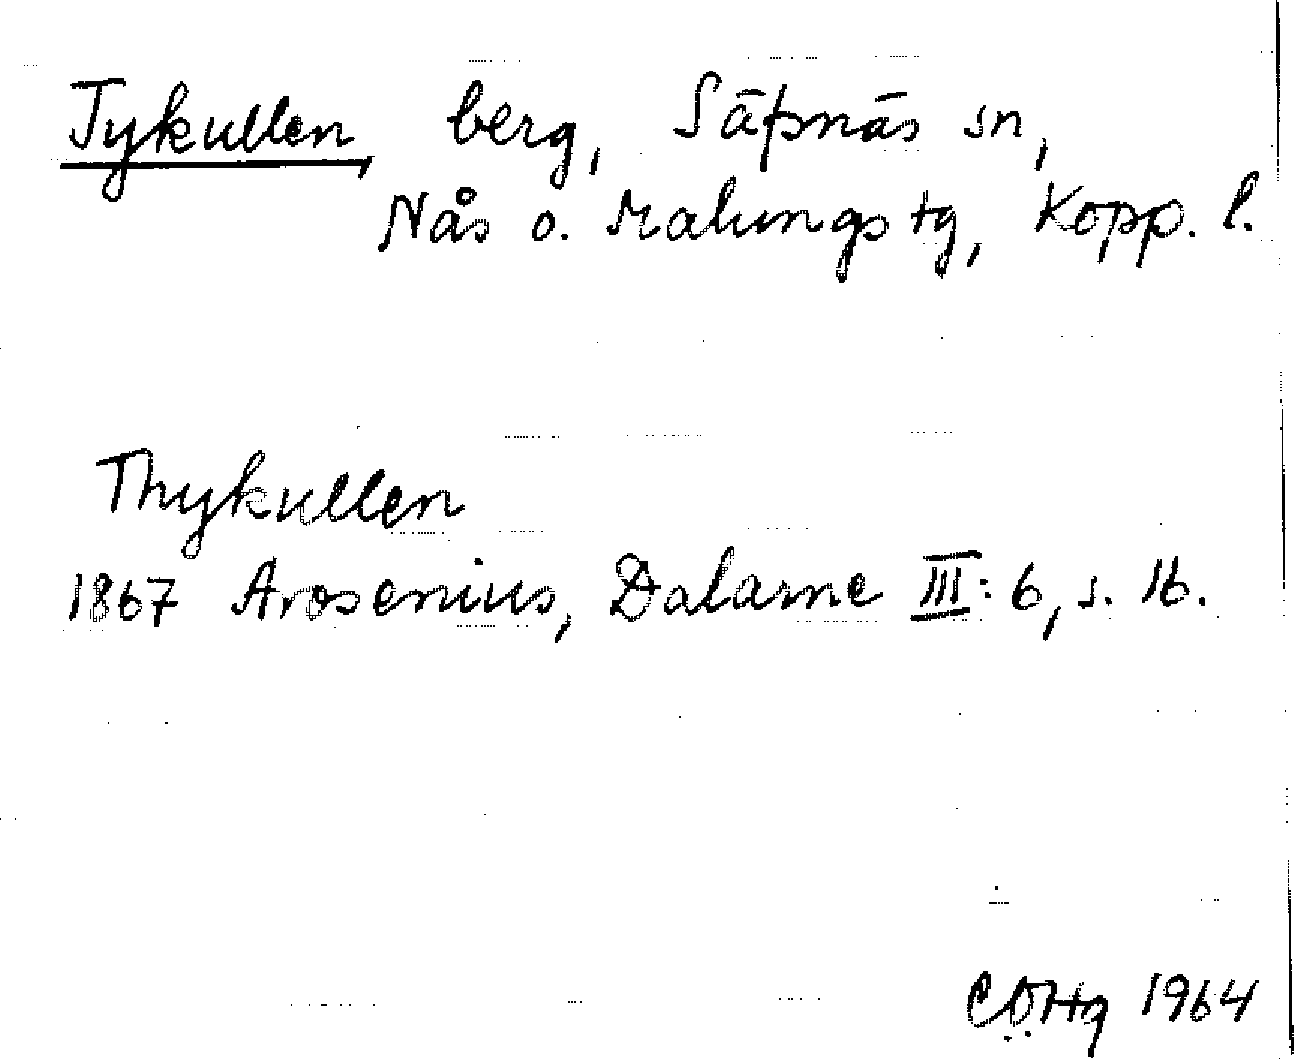 Tykullen, berg, Säfsnäs sn,
Nås o. Malungs tg, Kopp. l.
Thykullen
1867 Arosenius, Dalarne III: 6, s. 16.
1964